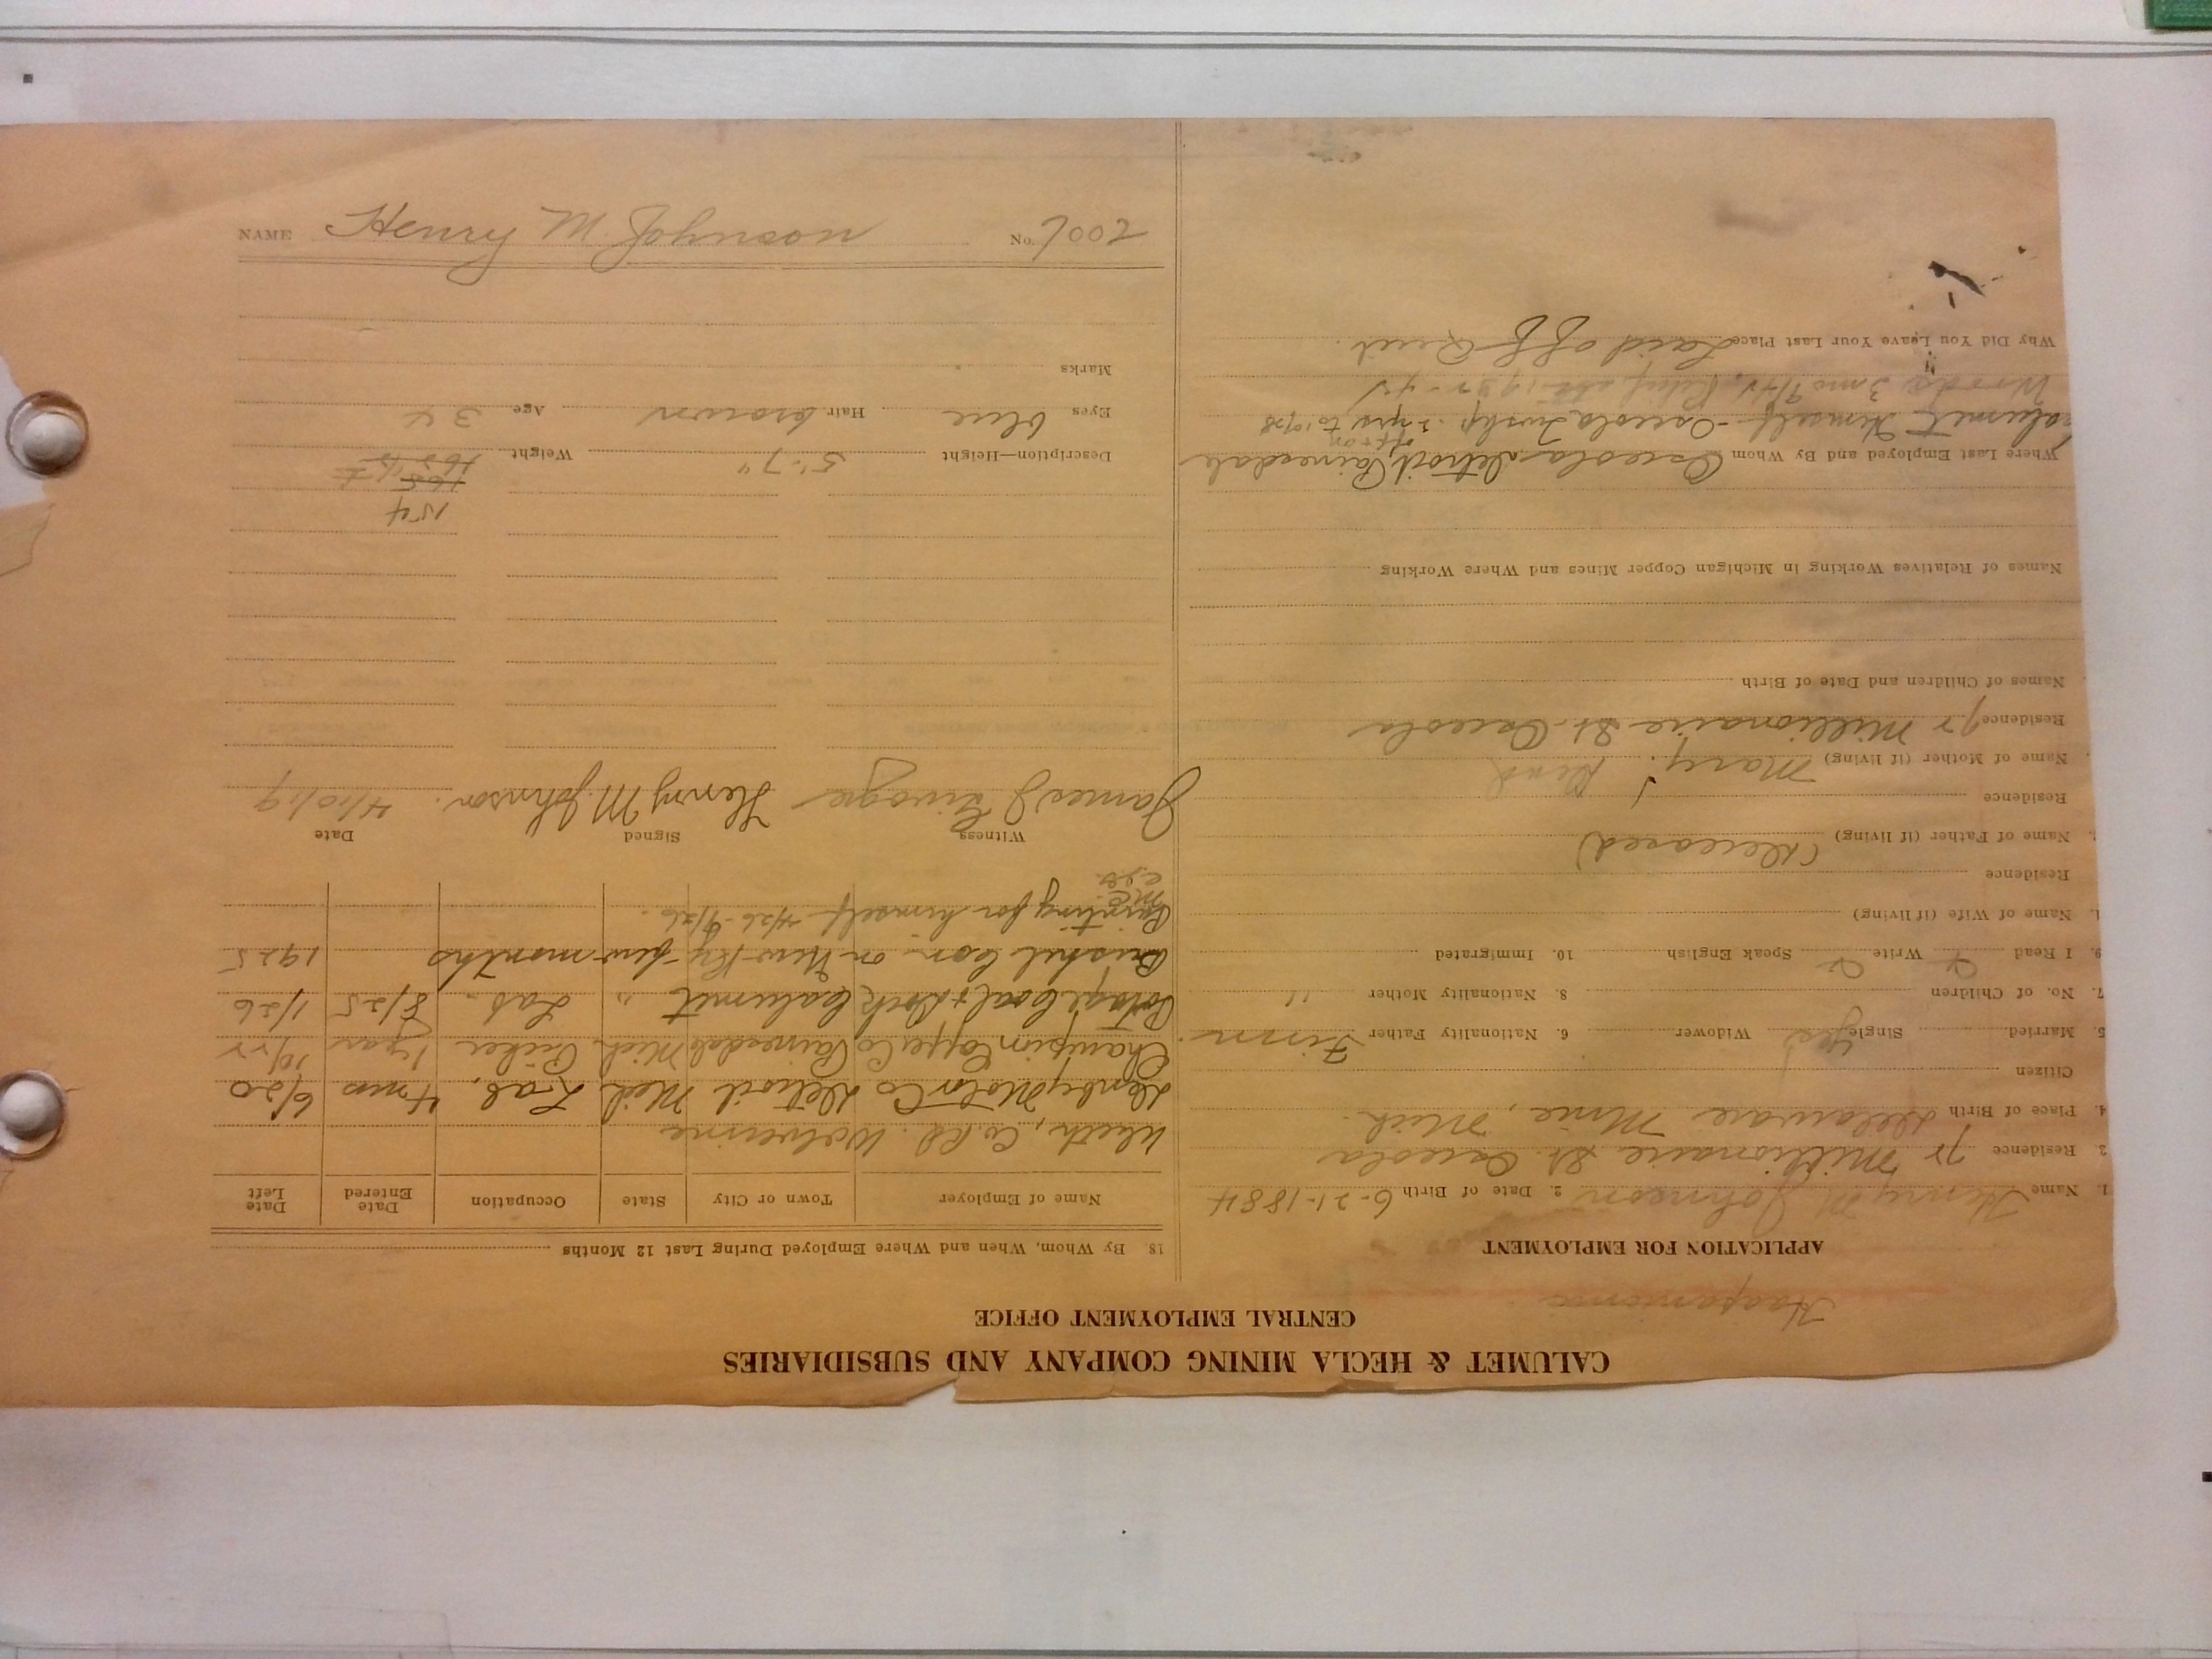 CALUMET & HECLA MINING COMPANY AND SUBSIDIARIES
CENTRAL EMPLOYMENT OFFICE
APPLICATION FOR EMPLOYMENT
1. Name Henry M Johnson 2. Date of Birth 6-21-1884
3. Residence 72 Millionaire St. Osceola
4. Place of Birth Delaware Mine, Mich.
Citizen
5. Married Single yes Widower 6. Nationality Father Finn.
7. No. of Children 8. Nationality Mother 11
9. I Read Write Speak English 10. Immigrated
1. Name of Wife (if living)
Residence
Name of Father (if living) (Deceased)
Residence
Name of Mother (if living) Mary. Dead
Residence 72 Millionaire St. Osceola
Names of Children and Date of Birth
Names of Relatives Working in Michigan Copper Mines and Where Working
Where Last Employed and By Whom Osceola Detroit, Painesdale
Calumet Himself - Osceola Twshp. 2 yrs to 10/28
off + on
Woods 3 mo
Why Did You Leave Your Last Place Laid off
18. By Whom, When and Where Employed During Last 12 Months
Name of Employer Town or City State Occupation Date Entered Date Left
Co. Rd. Wolverine
Denby Motor Co Detroit Mich Lab. 4 mos 6/20
Champion Copper Co Painesdale Mich. Picker 1 year 10/22
Portage Coal + Dock Calumet " Lab. 8/25 1/26
Bristol Con. on New Hy - few months 1925
Painting for himself 4/26 - 9/26.
Witness Signed Date
James J Henry M. Johnson. 4/10/19
154
165
Description—Height 5'-7" Weight
Eyes blue Hair brown Age 34
Marks
NAME Henry M. Johnson No. 7002